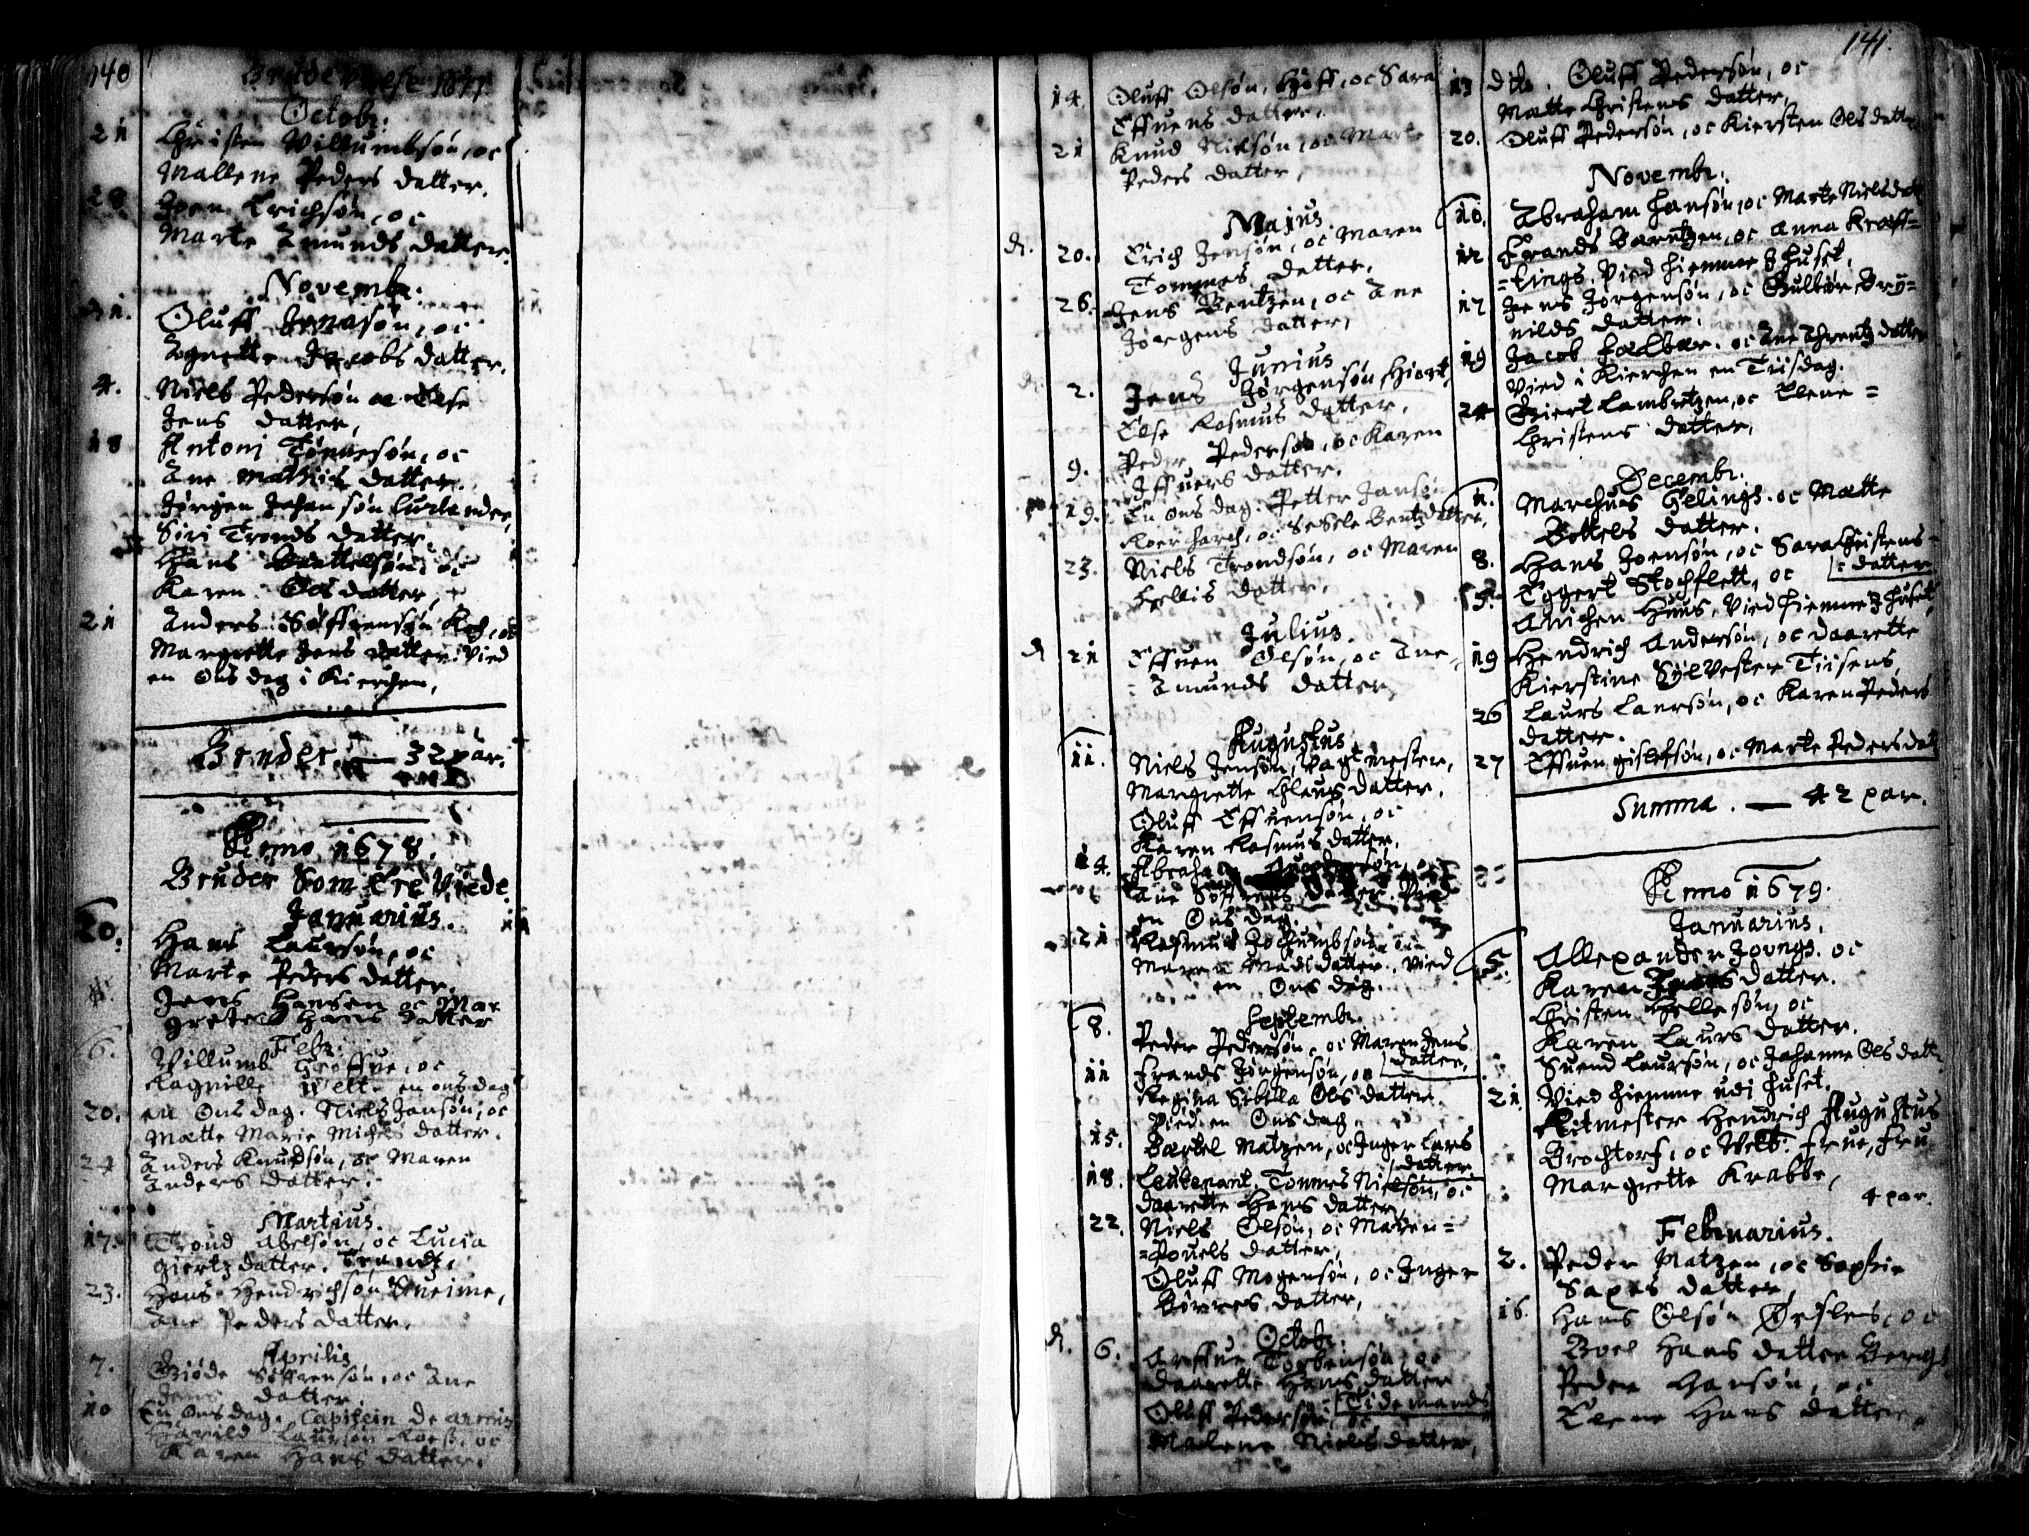 140
Brude 1677
Octobr:
21 Christen Villumbsøn, oc
Mallene Peders datter.
28 Joen Erichsøn, oc
Marte Amunds datter.
Novembr.
Oluff Jonasøn, oc
Agnette Jacobs datter.
4. Niels Pedersøn oc Else
Jens datter,
18 Antoni Tønnesøn, oc
Ane Mathis datter.
Jørgen Johansøn Curlender,
Siri Tronds datter
Hans Bottelsøn, oc
Karen Ols datter,
21 Anders Søffrensøn Koch, oc
Margrette Jens datter. Vied
en Onsdag i Kierchen,
Bruder — 32 par.
Anno 1678.
Bruder Som Ere Viede
Januarius.
20. Hans Laursøn, oc
Marte Peders datter.
Jens Hansen oc Mar
grete Hans datter
Febr.
6. Villumb Grøffue, oc
Ragnille Welt. en onsdag
20. en Onsdag. Niels Jansøn, oc
Mætte Marie Michels datter.
24 Anders Knudsøn, oc Maren
Anders datter.
Martius.
17. Trond Abelsøn, oc Lucia
Giertz datter.
23. Hans Hendrichsøn
Ane Peders datter.
Aprilis
7. Giøde Søffrensøn, oc Ane
Jens datter.
10 En Onsdag. Capitein
Harild Laursøn oc
Karen Hans datter.
14. Oluff Olsøn, Hoff, oc Sara
Effuens datter.
21 Knud Nielsøn, oc Marte
Peders datter,
Majus
20. Erich Jensøn, oc Maren
Tommes datter.
26. Jens Bentzen, oc Ane
Jørgens datter,
Junius
2. Jens Jørgensøn Hiort,
Else Rasmus datter.
9. Peder Pedersøn, oc Karen
Iffuers datter.
19. En onsdag. Petter Jansøn
oc Sesele Bentz datter,
23. Niels Trondsøn, oc Maren
datter,
Julius.
21 Effuen Olsøn, oc Ane
Amunds datter,
Augustus
11. Niels Jensøn, Vagtmester,
Margrette Claus datter.
Oluff Effuensøn, oc
Karen Rasmus datter,
14. Abraham
Ane Søffrens datter. Vied
en Onsdag.
21 Rasmus Jochumbsøn
Maren Mads datter. Vied
en Onsdag.
Septembr.
8. Peder Pedersøn, oc Maren Jens
datter,
11 Frands Jørgensøn, oc
Regina Sibilla Ols datter.
Vied en Onsdag.
15. Bartel Matzen, oc Inger Lars
datter
18. Leutenant, Tommes Nielsøn, oc
Daarette Hans datter,
22. Niels Olsøn, oc Maren=
=Pouels datter,
Oluff Mogensøn, oc Inger
Børres datter,
Octobr.
6. Torbensøn, oc
Daarette Hans datter
Tidemands
Oluff Pedersøn, oc
Malene Niels datter,
141.
13 dito. Oluff Pedersøn, oc
Mætte Christens datter,
20. Oluff Pedersøn, oc Kiersten Ols datter
Novembr.
10. Abraham Hansøn, oc Marte Niels datt
12 Frands Barntzen, oc Anna Kræff=
=tings, Vied Hiemme J Huset.
17 Jens Jørgensøn, oc Gulbiør Bry=
nilds datter.
19 Jacob oc Ane datter
Vied i Kierchen en Tiisdag.
24 Giert Lambrtzen, oc Elene =
Christens datter,
Decembr.
1. Marchus Gelings. oc Mætte
Bottels datter.
8. Hans Joensøn, oc Sara Christens=
=datter.
15. Eggert Stochflett, oc
Anichen Huus, Vied Hiemme J Huset,
19 Hendrich Andersøn, oc Daarette
Kierstine Sylvester Tiisens,
26 Laurs Laursøn, oc Karen Peders
datter.
27 Effuen Gislefsøn, oc Marte Peders datt
Summa. — 42 par.
Anno 1679.
Januarius.
5. Allexander Jovngs. oc
Karen datter.
Christen Hellesøn, oc
Karen Laurs datter.
Suend Laursøn, oc Johanne Ols datt
21. Vied Hiemme udj Huset.
Ritmester Hendrich Augustus
Brochtorf, oc Velb: Frue, Fru
Margrette Krabbe,
4 par.
Februarius.
2. Peder Matzen, oc Sophie
Saxes datter,
16. Hans Olsøn oc
Boel Hans datter Berg,
Peder Hansøn, oc
Elene Hans datter,